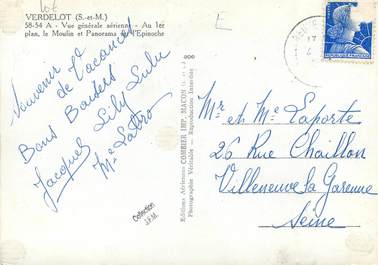 lot
VERDELOT (S.-et-M.)
58-54 A - Vue générale aérienne - Au 1er
plan, le Moulin et Panorama de l'Epinoche
Souvenir
de Vacances
Bons Baisers
Jacques Lily Lulu
Me
Collection
J.F.M.
Editions Aériennes COMBIER IMP. MACON
Photographie Véritable - Reproduction Interdite
Mr et Me Laporte
26 Rue Chaillon
Villeneuve la Garenne
Seine